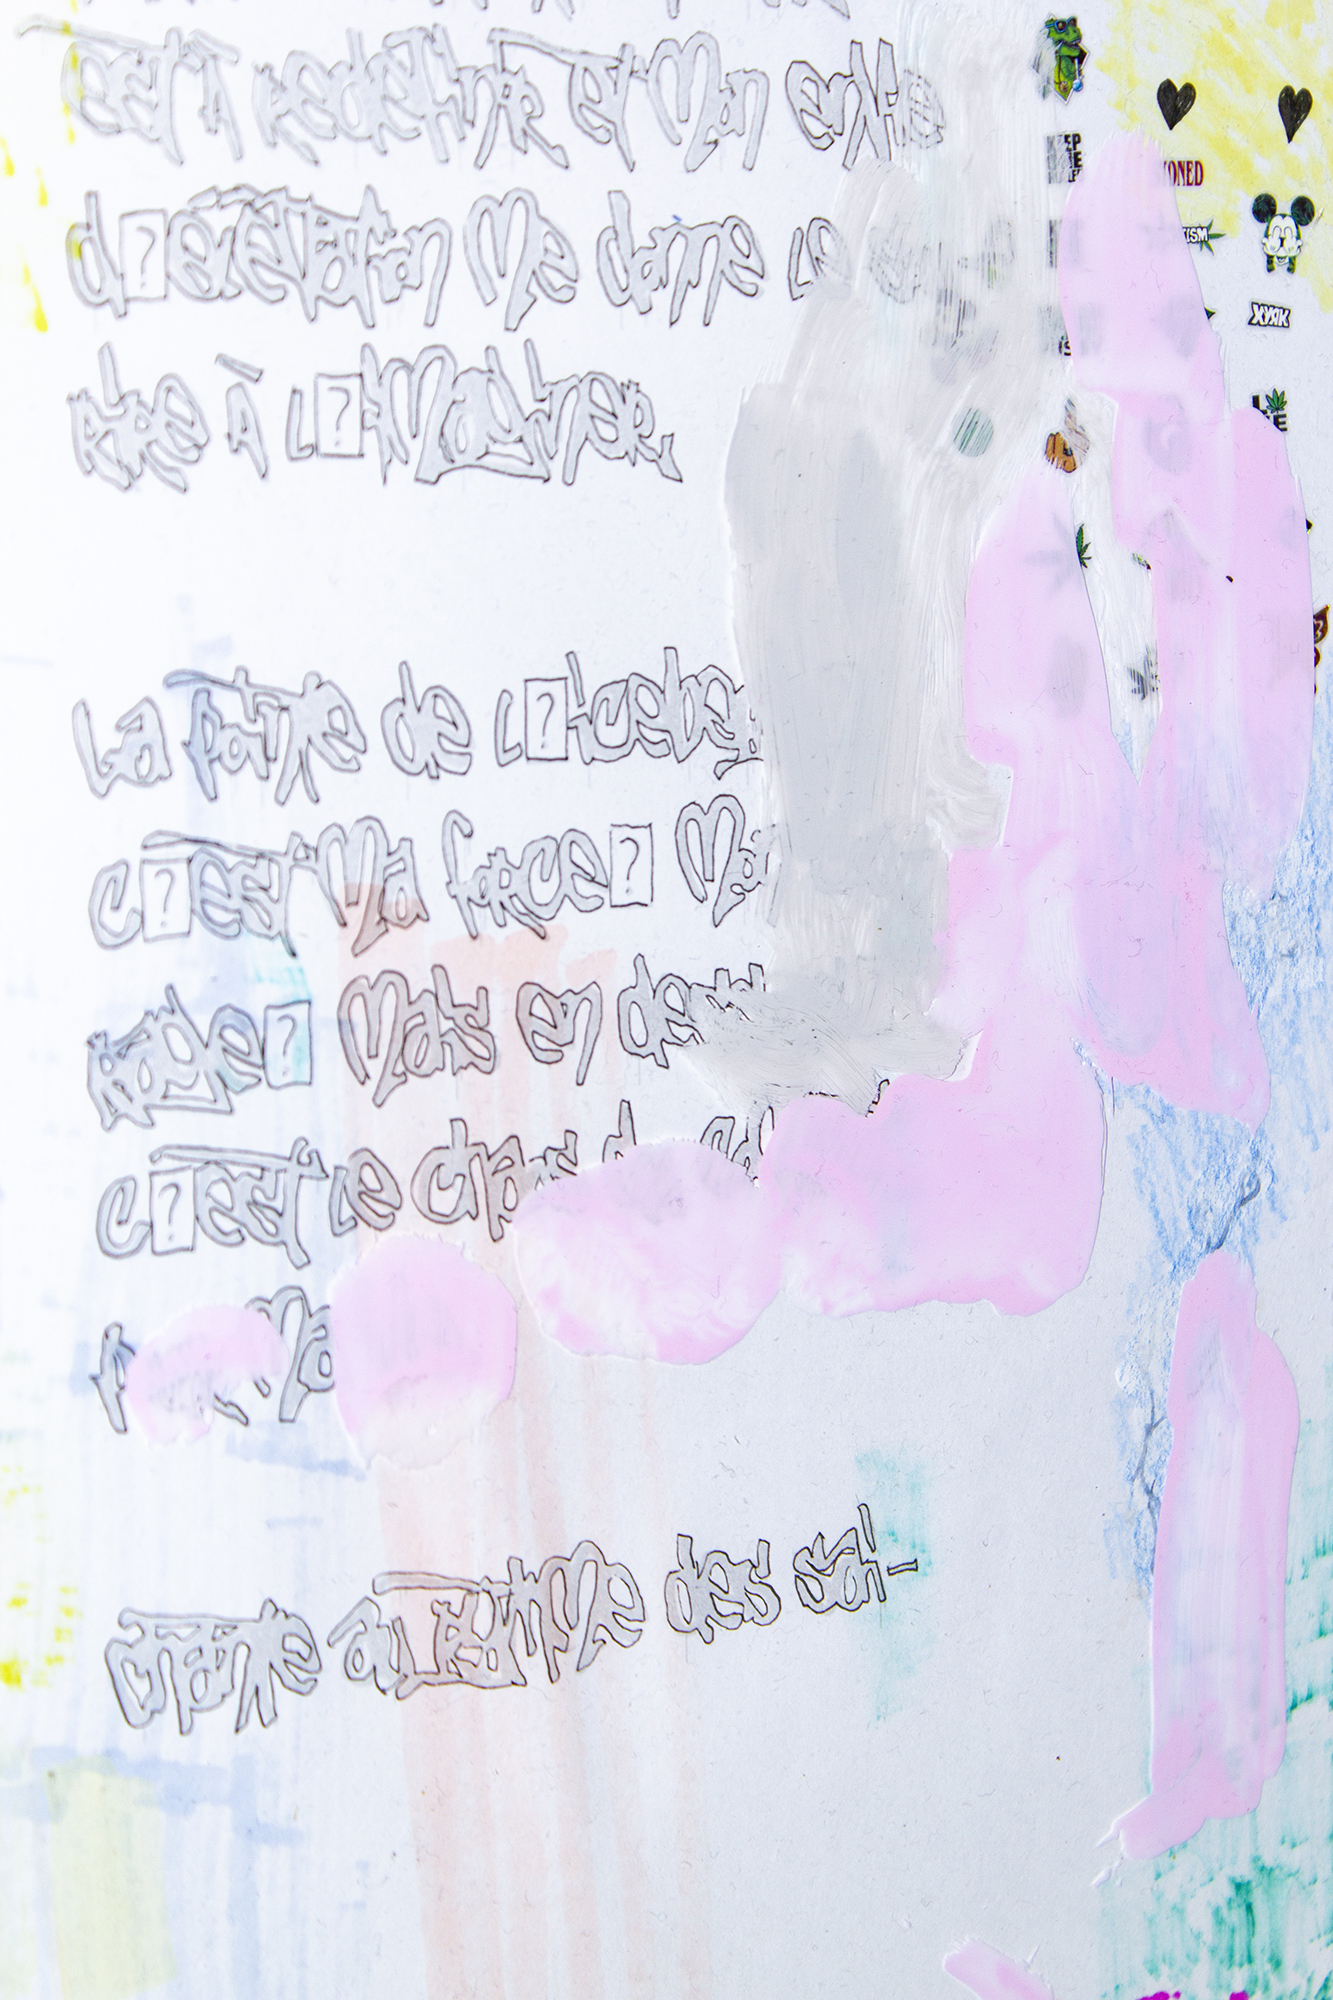 est à redéfinir et mon envie
d?élévation me donne le
rire à l?imaginer.
La pointe de l?iceberg
c?est ma force? Ma
Rage? Mais en dess
c?est le chaos
chante au rythme des sai-
KEEP
ONED
ISM